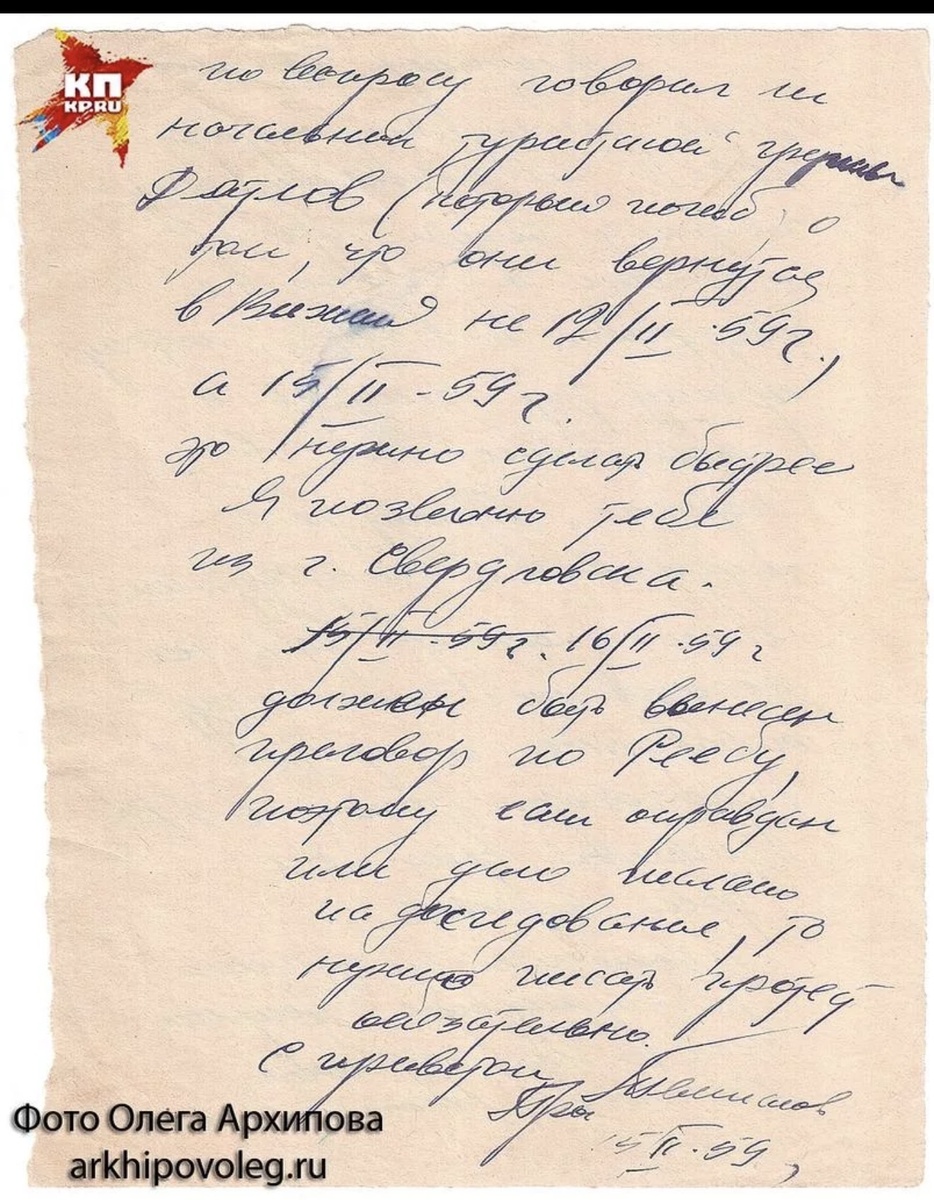 КП
KP.RU
по вопросу говорил ли
начальник туристской группы
Дятлов (который погиб) о
том, что они вернутся
в Вижай не 12/II.59 г.,
а 15/II - 59 г.
это нужно сделать быстрее
Я позвоню тебе
из г. Свердловска.
15/II.59 г. 16/II.59 г
должен быть вынесен
приговор по Реебу,
поэтому если оправдан
или дело послано
на доследование, то
нужно писать протест
обязательно.
С приветом
15/II.59,
Фото Олега Архипова
arkhipovoleg.ru